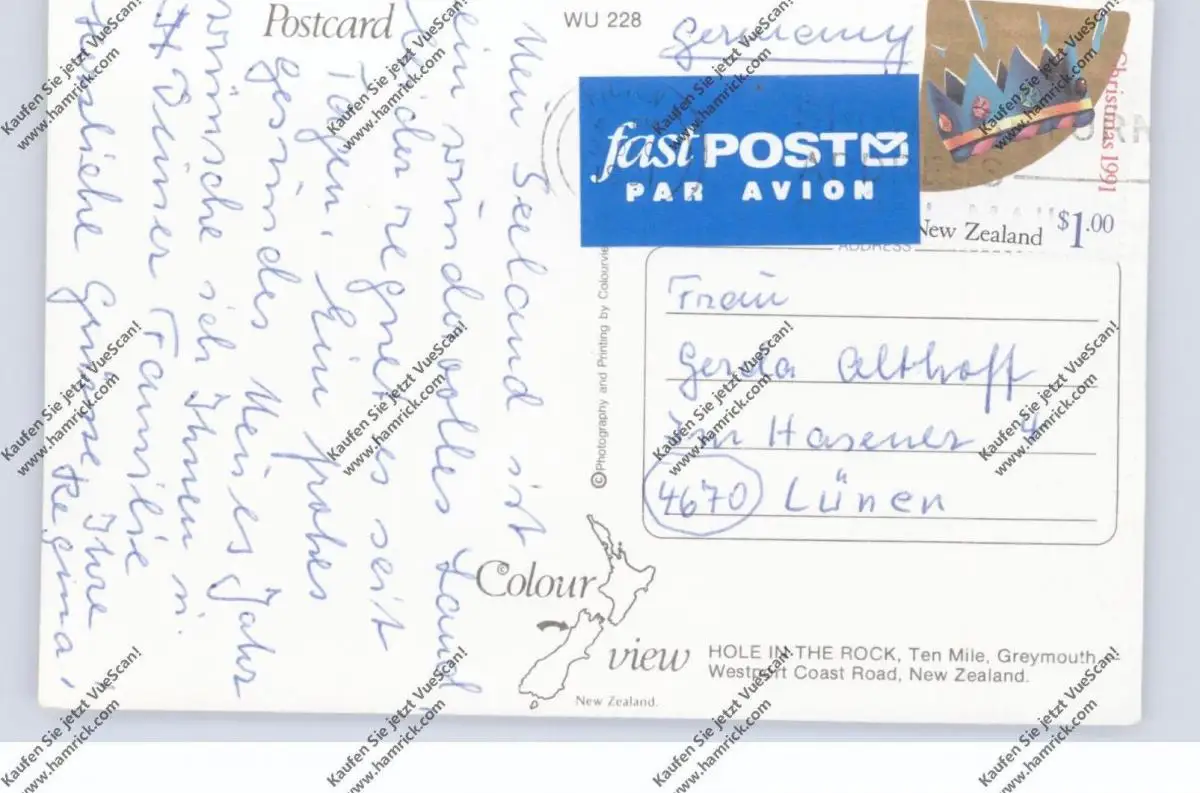 Postcard
WU 228
Germany
fastPOST
PAR AVION
Christmas 1991
New Zealand $1.00
ADDRESS
Neu Seeland ist
ein wundervolles Land,
leider regnet es seit
Tagen. Ein frohes
gesundes Neues Jahr
wünsche ich Ihnen u.
Deiner Familie
Herzliche Grüsse Ihre
Regina
Frau
Gerda Althoff
4
4670 Lünen
©Photography and Printing by Colourvie
©Colour
view
New Zealand.
HOLE IN THE ROCK, Ten Mile, Greymouth –
Westport Coast Road, New Zealand.
Kaufen Sie jetzt VueScan!
www.hamrick.com
Kaufen Sie jetzt VueScan!
www.hamrick.com
Kaufen Sie jetzt VueScan!
www.hamrick.com
Kaufen Sie jetzt VueScan!
www.hamrick.com
Kaufen Sie jetzt VueScan!
www.hamrick.com
Kaufen Sie jetzt VueScan!
www.hamrick.com
Kaufen Sie jetzt VueScan!
www.hamrick.com
Kaufen Sie jetzt VueScan!
www.hamrick.com
Kaufen Sie jetzt VueScan!
www.hamrick.com
Kaufen Sie jetzt VueScan!
www.hamrick.com
Kaufen Sie jetzt VueScan!
www.hamrick.com
Kaufen Sie jetzt VueScan!
www.hamrick.com